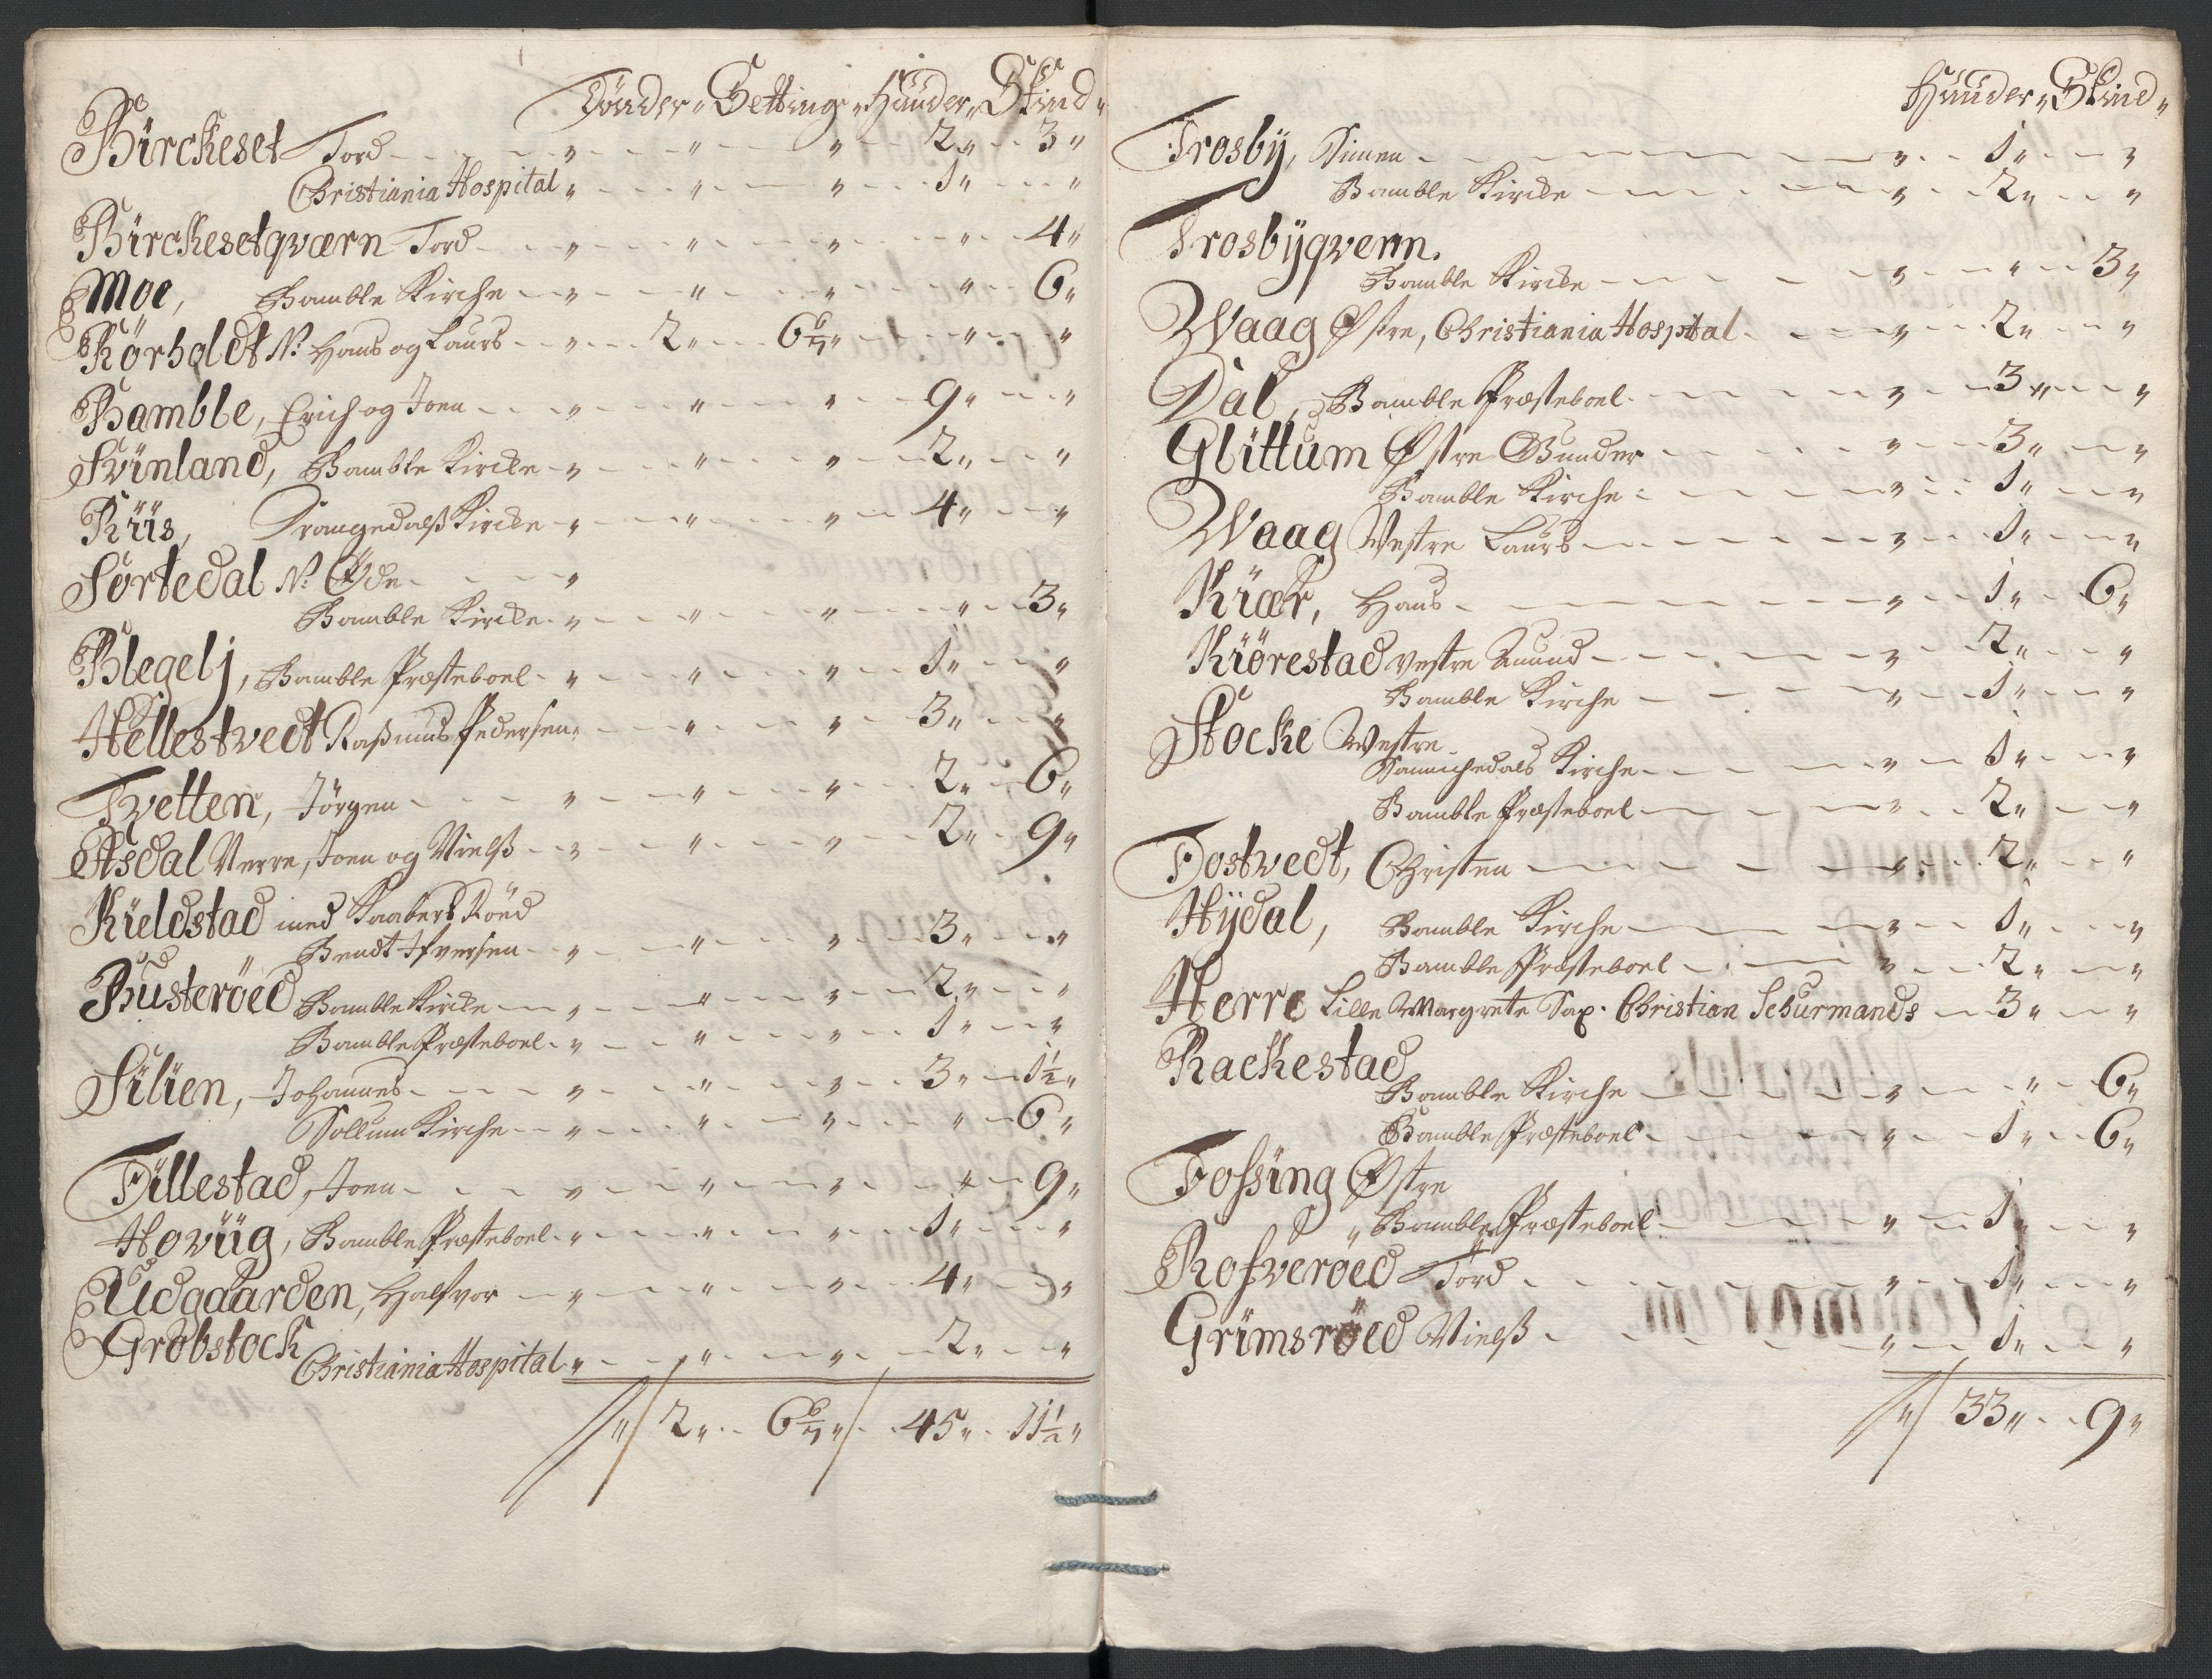 Tönder „ Setting „ Huuder „ Skind „
Birckeset Tord „ „ „ 2 „ 3 „
Christiania Hospital „ „ „ 1 „ „
Birckesetqværn Tord „ „ „ „ 4 „
Moe, Bamble Kirche „ „ „ „ 6 „
Körholdt N: Hans og Laurs „ 2 „ 6 6/7 „ „ „
Bamble, Erich og Joen „ „ „ 9 „ „
Svinland, Bamble Kircke „ „ „ 2 „ „
Riis, Drangedalß Kircke „ „ „ 4 „ „
Sörtedal N: Øde „
Bamble Kircke „ „ „ „ 3 „
Blegelj, Bamble Præsteboel „ „ „ 1 „ „
Hellestvedt Raßmus Pedersen „ „ „ 3 „ „
Tvetten, Jörgen „ „ „ 2 „ 6 „
Asdal Nerre, Joen og Nielß „ „ „ 2 „ 9 „
Kieldstad med Raabers Röed
„ Bendt Ifversen „ „ „ 3 „ „
Busteröed Bamble Kircke „ „ „ 2 „ „
Bamble Præsteboel „ „ „ 1 „ „
Silien, Johannes „ „ „ 3 „ 1 1/2 „
Sollum Kirche „ „ „ „ 6 „
Fillestad, Joen „ „ „ „ 9 „
Hoviig, Bamble Præsteboel „ „ „ 1 „ „
Udgaarden, Halfvor „ „ „ 4 „ „
Grobstock
Christiania Hospital „ „ „ 2 „ „
„ 2 „ 6 6/7 „ 45 „ 11 1/2 „
Huuder „ Skind „
Trosby, Simen „ 1 „ „
Bamble Kircke „ 2 „ „
Trosbyqvern.
Bamble Kircke „ „ 3 „
Waag Østre, Christiania Hospital „ 2 „ „
Dal, Bamble Præsteboel „ 3 „ „
Glittum Østre Gunder „ 3 „ „
Bamble Kirche „ 1 „ „
Waag Vestre Laurs „ 1 „ „
Kiær, Hans „ 1 „ 6 „
Kiörestad vestre Amund „ 2 „ „
Bamble Kirche „ 1 „ „
Stocke Westre
Sannichedals Kirche „ 1 „ „
Bamble Præsteboel „ 2 „ „
Tostvedt, Christen „ 2 „ „
Hydal, Bamble Kirche „ 1 „ „
Bamble Præsteboel „ 2 „ „
Herre Lille Margrete Sap. Christian Schurmands 3 „ „
Rackestad
Bamble Kirche „ „ 6 „
Bamble Præsteboel „ 1 „ 6 „
Fossing Østre
„ Bamble Præsteboel „ 1 „ „
Rosveröed Tord „ 1 „ „
Grimsröed Nielß „ 1 „ „
„ 33 „ 9 „